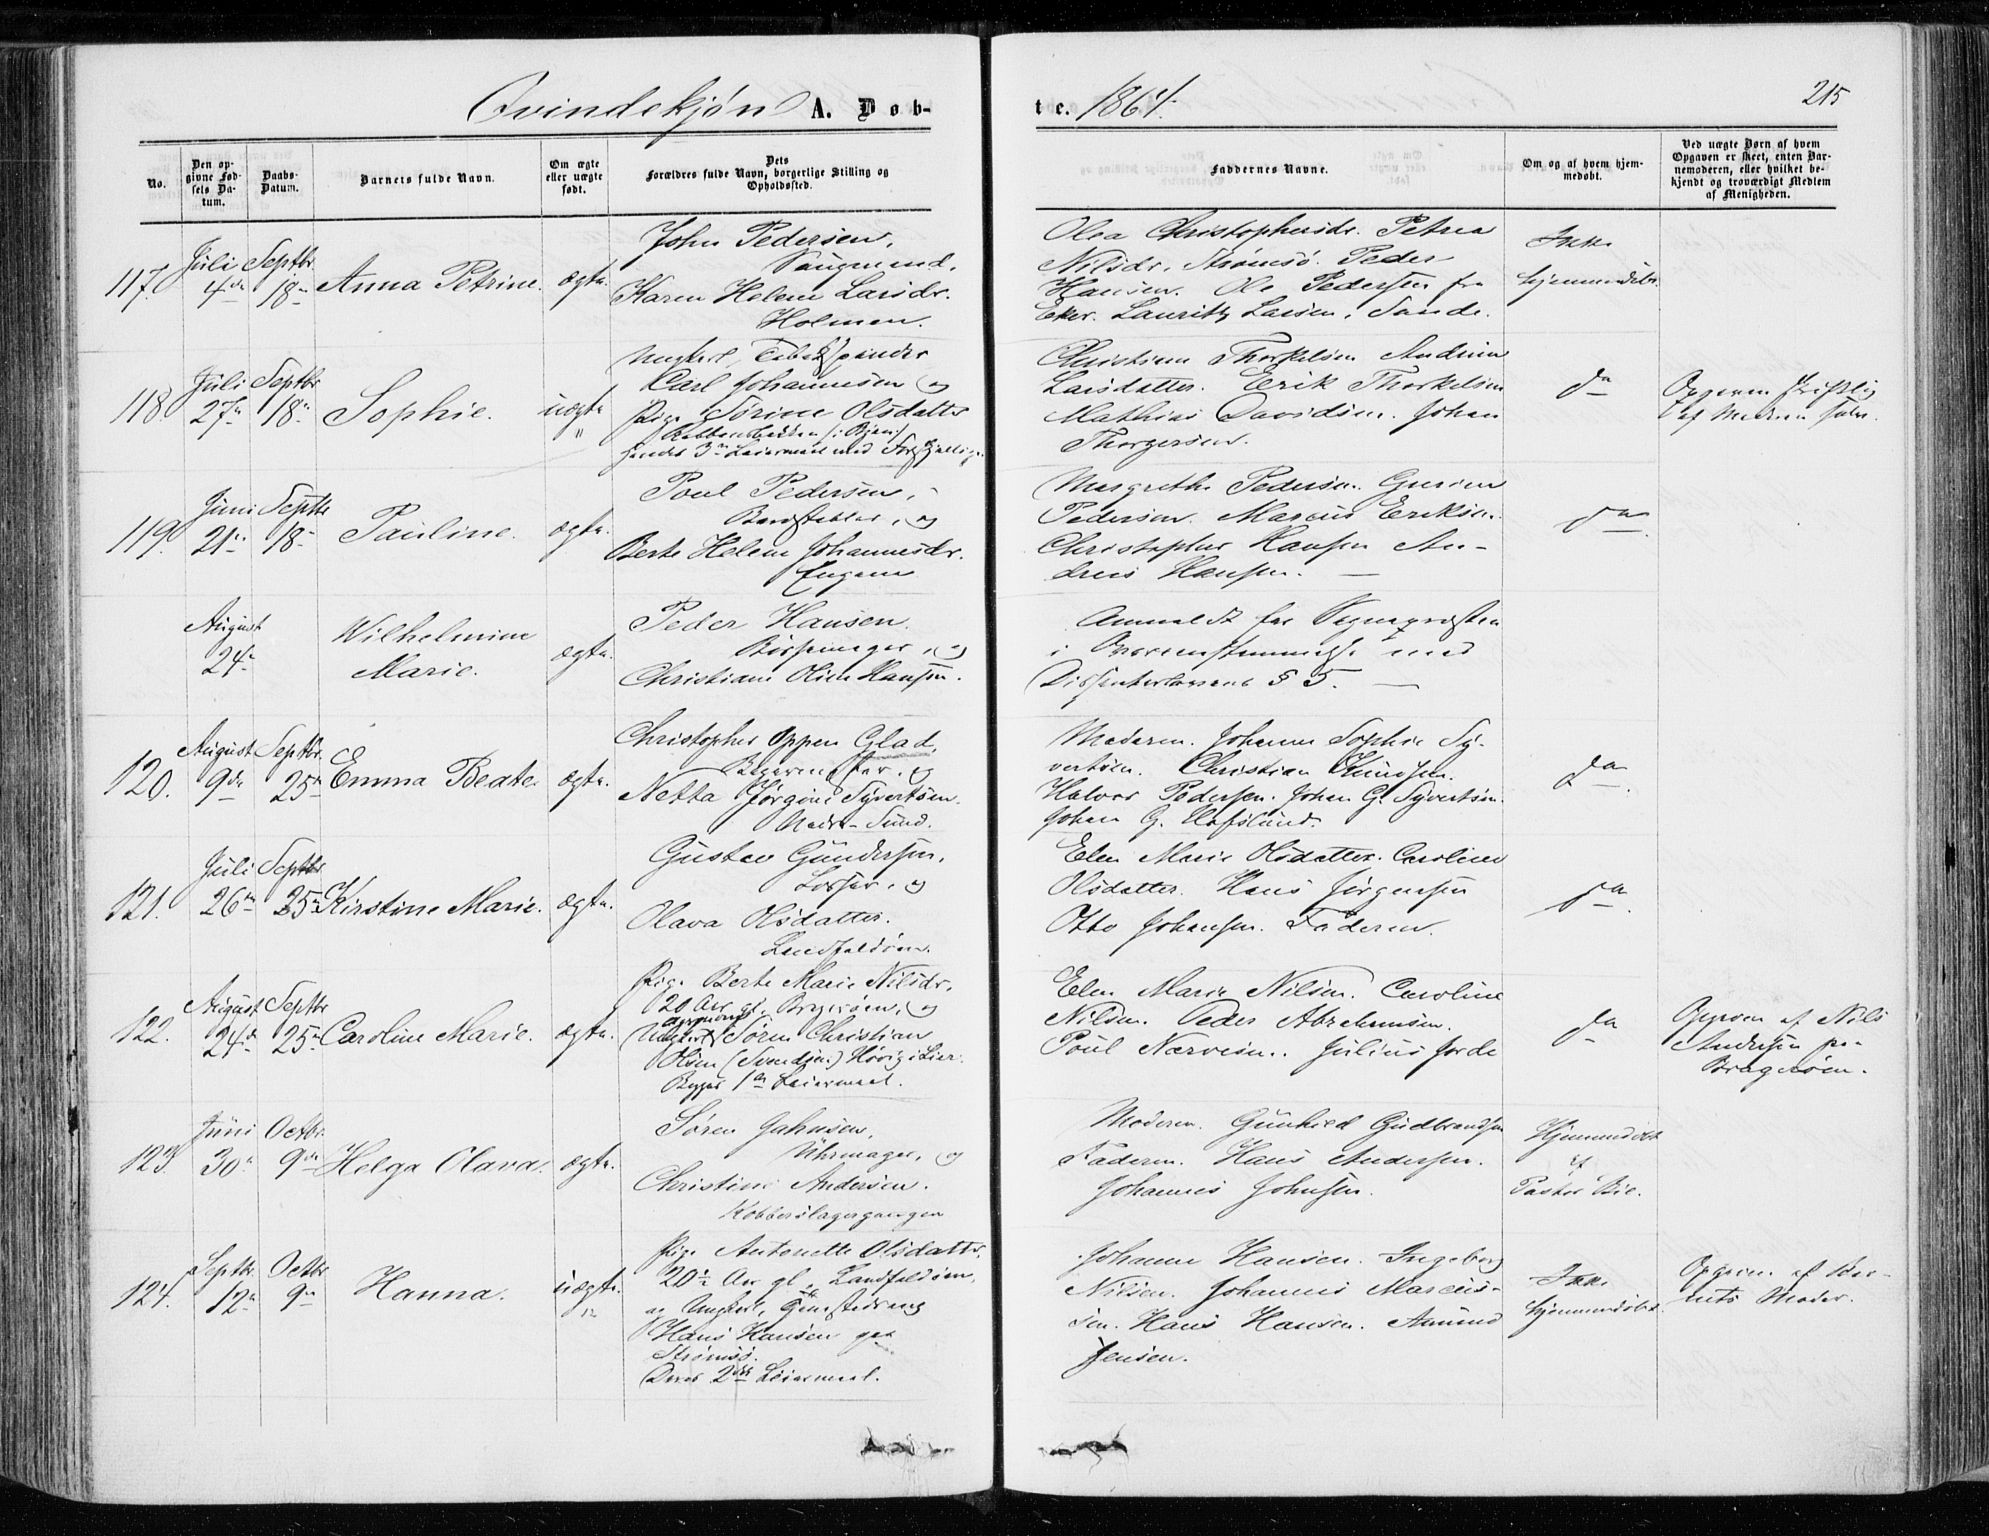 Qvindekjøn A. Døb-
te. 1864.
215
No.
Den op-
givne Fød-
sels Da-
tum.
Daabs-
Datum.
Barnets fulde Navn.
Om ægte
eller uægte
født.
Dets
Forældres fulde Navn, borgerlige Stilling og
Opholdssted.
Faddernes Navne.
Om og af hvem hjem-
medøbt.
Ved uægte Børn af hvem
Opgaven er skeet, enten Bar-
nemoderen, eller hvilket be-
kjendt og troværdigt Medlem
af Menigheden.
117.
Juli
4de
Septbr.
18n
Anna Petrine.
ægte.
John Pedersen,
Karen Helene Larsdr.
Holmen.
Olea Christophersdr. Petrea
Nilsdr. Strømsø. Peder
Hansen. Ole Pedersen fra
Eker. Lauritz Larsen, Sande.
Ikke
hjemmedøbt.
118.
Juli
27n
Septbr
18n
Sophie.
uægte
"
Ungkarl, Tobakspinder
Carl Johannesen og
Pige Sorine Olsdatter
hendes 3die Leiermaal med Forskjellige.
Christiane Thorkelsen Andrine
Larsdatter. Erik Thorkelsen
Mathias Davidsen. Johan
Thorgersen.
da
Opgaven skriftlig
af Moderen selv.
119.
Juni
21n
Septbr
18n
Pauline.
ægte.
Poul Pedersen,
Bordstabler, og
Berte Helene Johannesdr.
Engene
Margrethe Pedersen. Gurine
Pedersen. Marcus Eriksen.
Christopher Hansen An-
dreas Hansen. —
da
August
24n
Wilhelmine
Marie.
ægte.
Peder Hansen.
Børsemager, og
Christiane Oline Hansen.
Anmeldt for Sognepræsten
i Overensstemmelse med
Dissenterlovens § 5. —
120.
August
9de
Septbr.
25n
Emma Beate
ægte.
Christopher Oppen Glad,
Bagermester, og
Netta Jørgine Syvertsen.
Nedre-Sund.
Moderen. Johanne Sophie Sy-
vertsen. Christian Knudsen.
Halvor Pedersen. Johan G. Syvertsen.
Johan G. Hafslund.
da
121.
Juli
26n
Septbr
25n
Kirstine Marie.
ægte.
Gustav Gundersen,
Losser, og
Olava Olsdatter.
Landfaldøen.
Elen Marie Olsdatter. Caroline
Olsdatter. Hans Jørgensen
Otto Johansen. Faderen.
da
122.
August
24de
Septbr
25n
Caroline Marie.
ægte.
Pige Berte Marie Nilsdr.
20 Aar gl. Bragerøen, og
Ungkarl Søren Christian
Olsen (Svendsen) Høvig i Lier
Begges 1ste Leiermaal.
Elen Marie Nilsen. Caroline
Nilsen. Peder Abrahamsen.
Poul Narvesen. Julius Jorde
da
Opgaven af Nils
Andersen paa
Bragerøen.
123.
Juni
30n
Octbr.
9de
Helga Olava.
ægte.
Søren Jahnsen,
Uhrmager, og
Christine Andersen.
Kobberslagergangen
Moderen. Gunhild Gudbrandsen
Faderen. Hans Andersen.
Johannes Johnsen.
Hjemmedøbt
af
Pastor Bie.
124.
Septbr.
12n
Octbr
9n
Hanna.
uægte.
Pige Antonette Olsdatter.
20½ Aar gl. Landfaldøen,
og Ungkarl,
Hans Hansen paa
Strømsø.
Deres 2det Leiermaal.
Johanne Hansen. Ingeborg
Nilsen. Johannes Marcus-
sen. Hans Hansen. Amund
Jensen.
Ikke
hjemmedøbt.
Opgaven af Bar-
nets Moder.